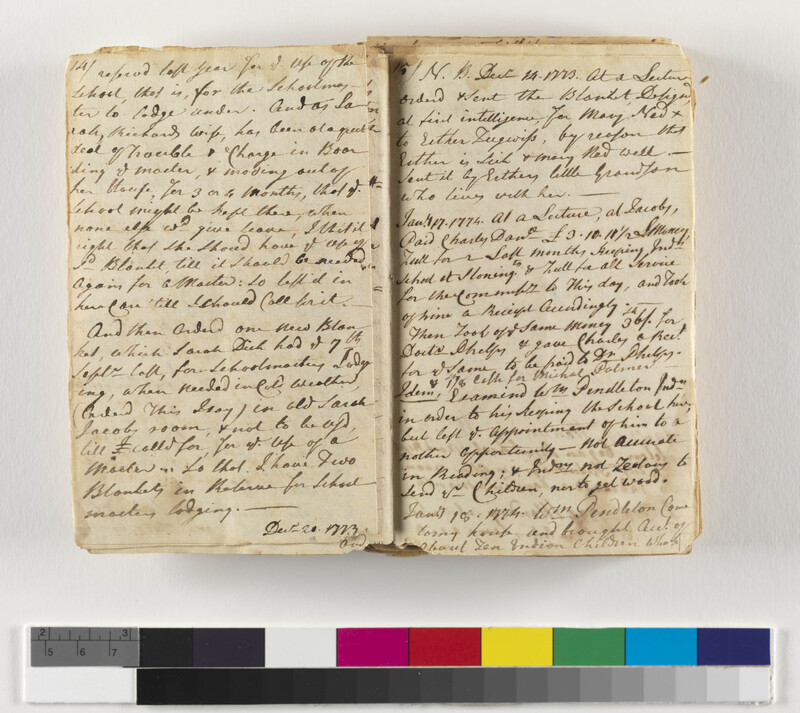 14/ reserv'd last year for ye Use of the
School, that is, for the Schoolmas-
ter to lodge under. And as Sa-
rah, Richards wife, has been at a great
deal of Trouble & Charge in Boar
ding ye master, & moving out of
her House, for 3 or 4 Months, that ye
School might be kept there, when
none else wd give leave, I tho't it
right that She Should have ye Use of
sd Blanket, till it Should be needed
Again for a Master: So left it in
her Care till I should Call for it. —
And then Orderd one New Blan
ket, which Sarah Dick had ye 7th
Septr last, for Schoolmasters Lodg
ing, when needed in Cold Weather,
(Orderd This Day) in old Sarah
Jacobs room, & not to be us'd,
till I call'd for, for ye Use of a
Master: So that I have Two
Blankets in Reserve for School
masters lodging. —
Decr 20. 1773.
And
15/ N. B. Decr 14. 1773. At a Lecture
orderd & sent the Blanket Design'd
at first intelligence, for Mary Ned &
to Esther, by reason that
Esther is Sick & Mary Ned well. —
Sent it by Esthers little Grandson
who lives with her. —
Janry 17. 1774. At a Lecture, at Jacobs,
Paid Charles Danl £3.10.11 1/2 L Money,
full for 2 last months Keeping Indn
School at Stonington & full for all Service
for the Commissrs to This day, and Took
of him a Receipt Accordingly.
Then Took of ye Same Money 36/ for
Doctr Phelps & gave Charles a Rect
for ye Same to be paid to Dr Phelps.
Idem, & 1/8 Cash for Michal Palmer
Examind Wm Pendleton Indn
in order to his Keeping the School here,
but left ye Appointment of him to a
nother Opportunity — Not Accurate
in Reading; & Indns not Zealous to
Send yr Children, nor to get wood.
Janry 18. 1774. Wm Pendleton Came
to my house, and brought Acct. of
about Ten Indian Children whose